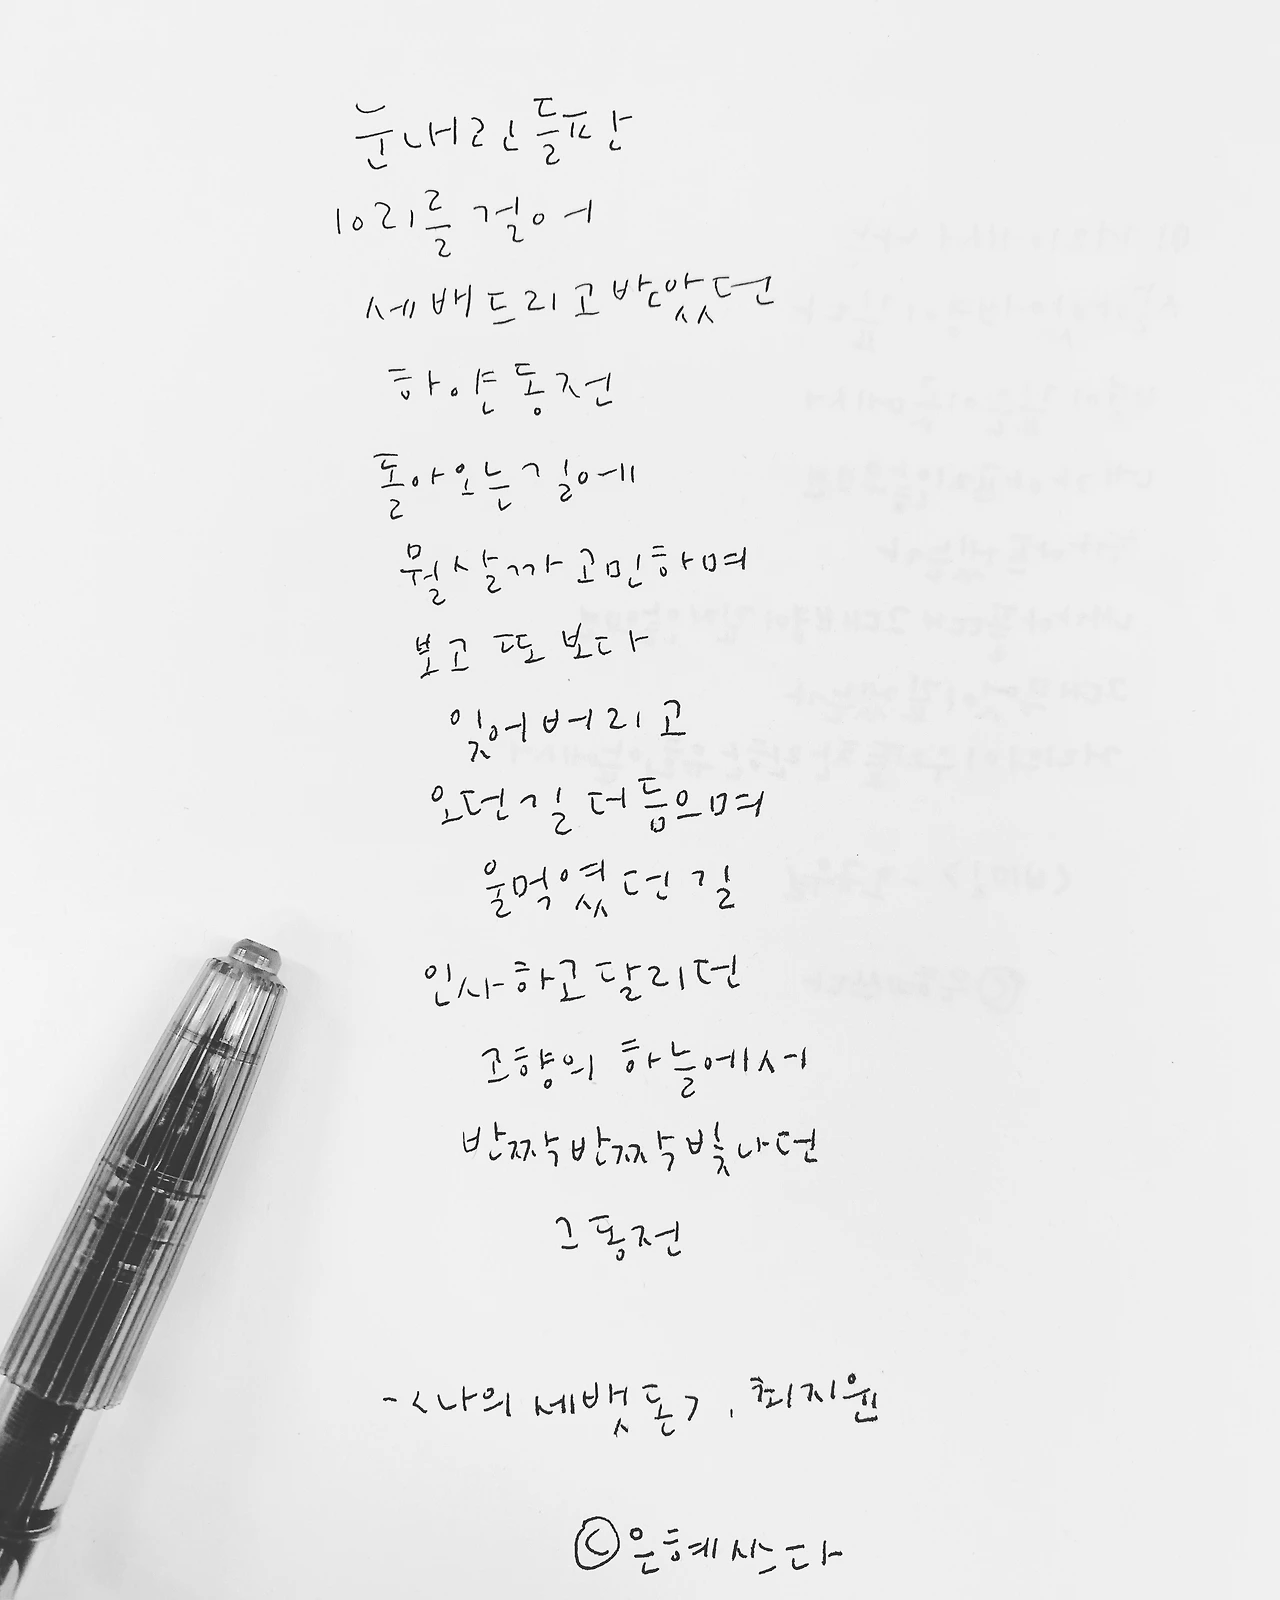 눈내린 들판
10리를 걸어
세배드리고 받았던
하얀 동전
돌아오는 길에
뭘 살까 고민하며
보고 또 보다
잊어버리고
오던 길 더듬으며
울먹였던 길
인사하고 달리던
고향의 하늘에서
반짝반짝 빛나던
그 동전
-<나의 세뱃돈>, 최지원
©은혜쓰다